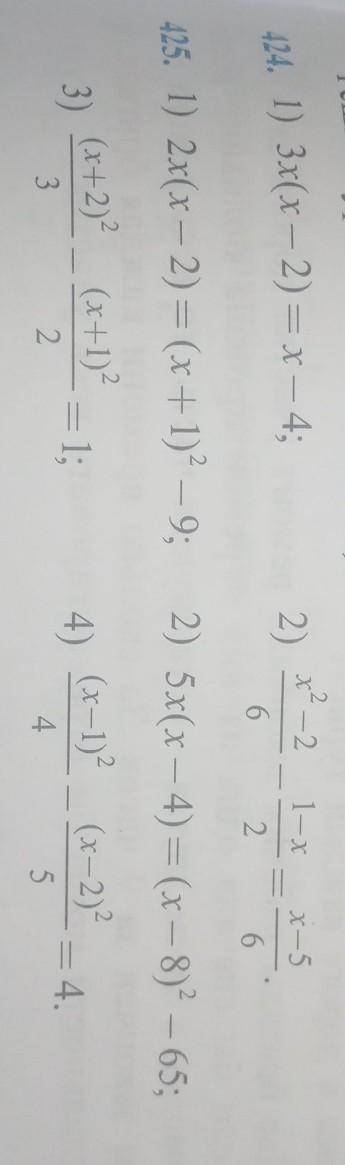 424. 1) 3x(x − 2) = x − 4; 2) (x² − 2)/6 − (1−x)/2 = (x−5)/6.
425. 1) 2x(x − 2) = (x + 1)² − 9; 2) 5x(x − 4) = (x − 8)² − 65;
3) (x+2)²/3 − (x+1)²/2 = 1; 4) (x−1)²/4 − (x−2)²/5 = 4.